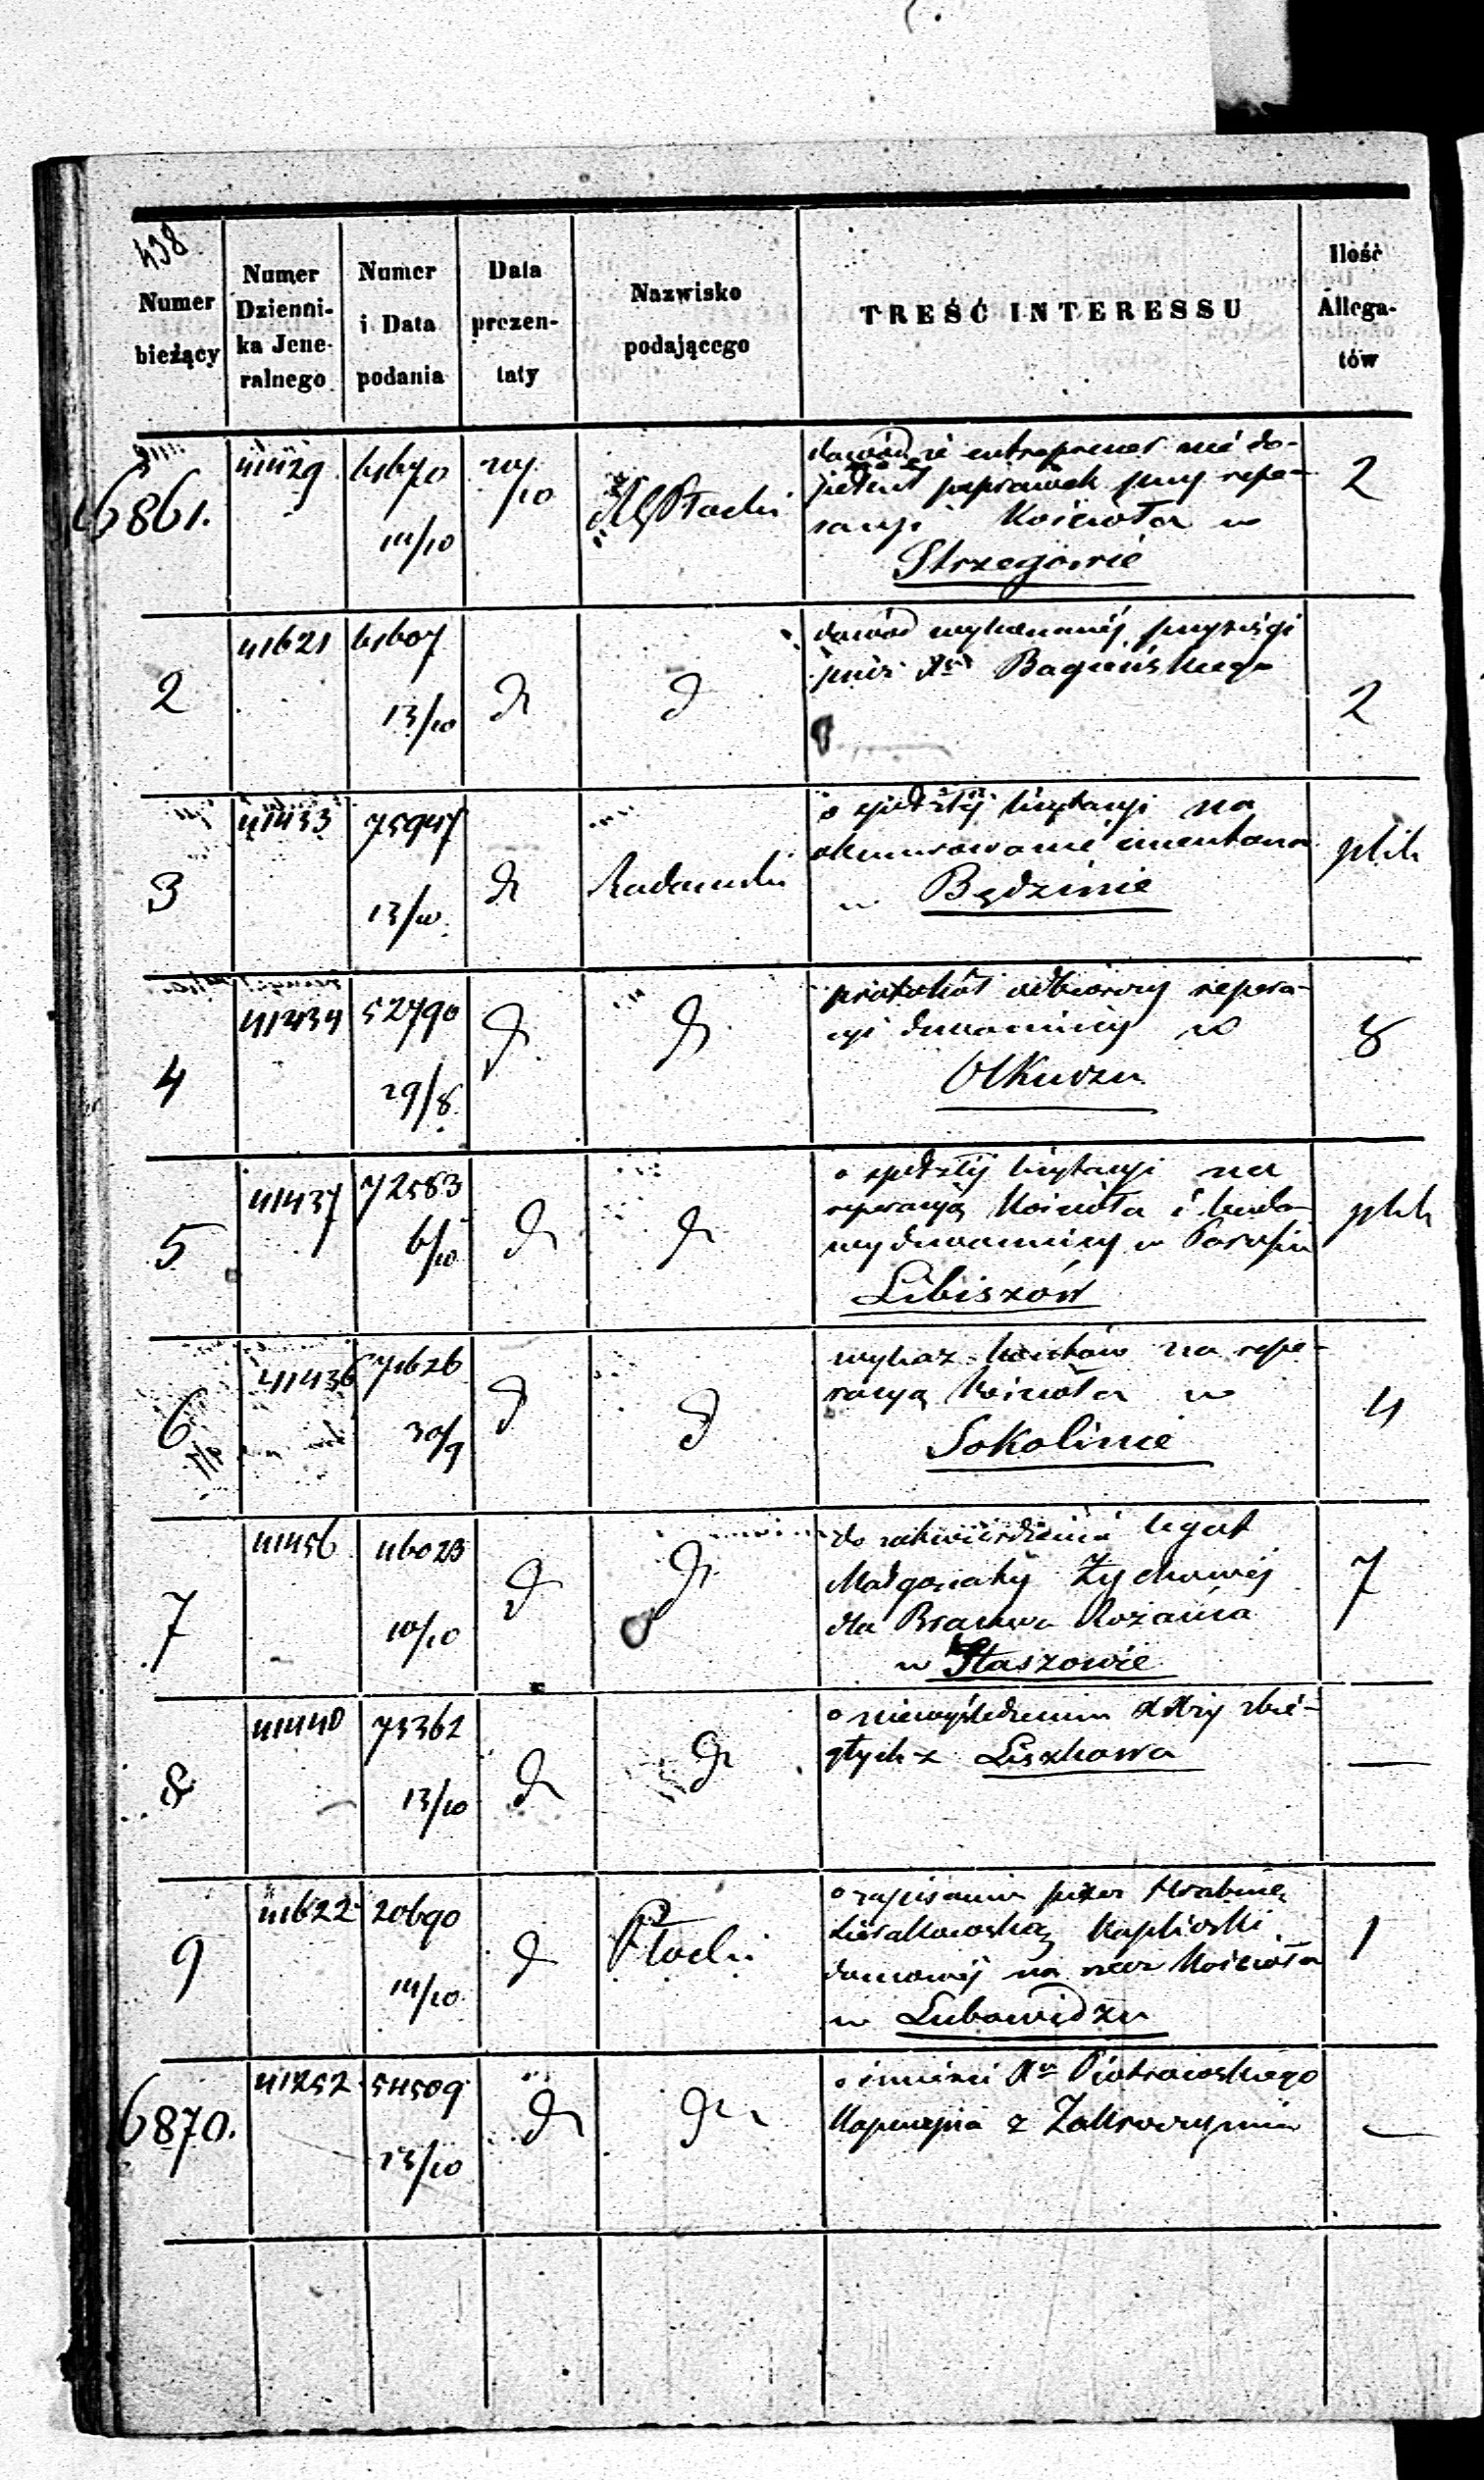 438
Numer bieżący
Numer Dzienni-ka Jene-ralnego
Numer i Data podania
Data prezen-taty
Nazwisko podającego
TREŚĆ INTERESSU
Ilość Allega-tów
6861.
41429
14/10
Płocki
dowód że entreprener nie do-
poprawek przy repe-
racyi Kościoła w
Strzegowie
2
2
41621
13/10
dowód wykonanéj przysięgi
przez Xa Bagieńskiego
2
3
41433
75947
13/10
Radomski
o spełzłéj licytacyi na
obmurowanie cmentarza
w Będzinie
plik
4
41434
52790
29/8
protokół odbiorczy repera-
cyi dzwonnicy w
Olkuszu
8
5
41437
72583
6/10
o spełzłéj licytacyi na
reperacyą Kościoła i budo-
wy dzwonnicy w Parafii
Libiszów
plik
6
41436
71626
30/9
wykaz kosztów na repe-
racyą Kościoła w
Sokolinie
4
7
41456
46023
10/10
do zatwierdzenia legat
Małgorzaty Zychowéj
dla Bractwa Rożańca
w Staszowie
7
8
41440
73362
13/10
o niewyśledzeniu dzieży zbie-
głych z Liszkowa
—
9
41622
20690
14/10
Płocki
o zapisaniu przez Hrabinę
Kapliczki
domowéj na rzecz Kościoła
w Lubowidzu
1
6870.
41252
54509
13/10
o śmierci Xa Piotrowskiego
Kapucyna z Zakroczymia
—